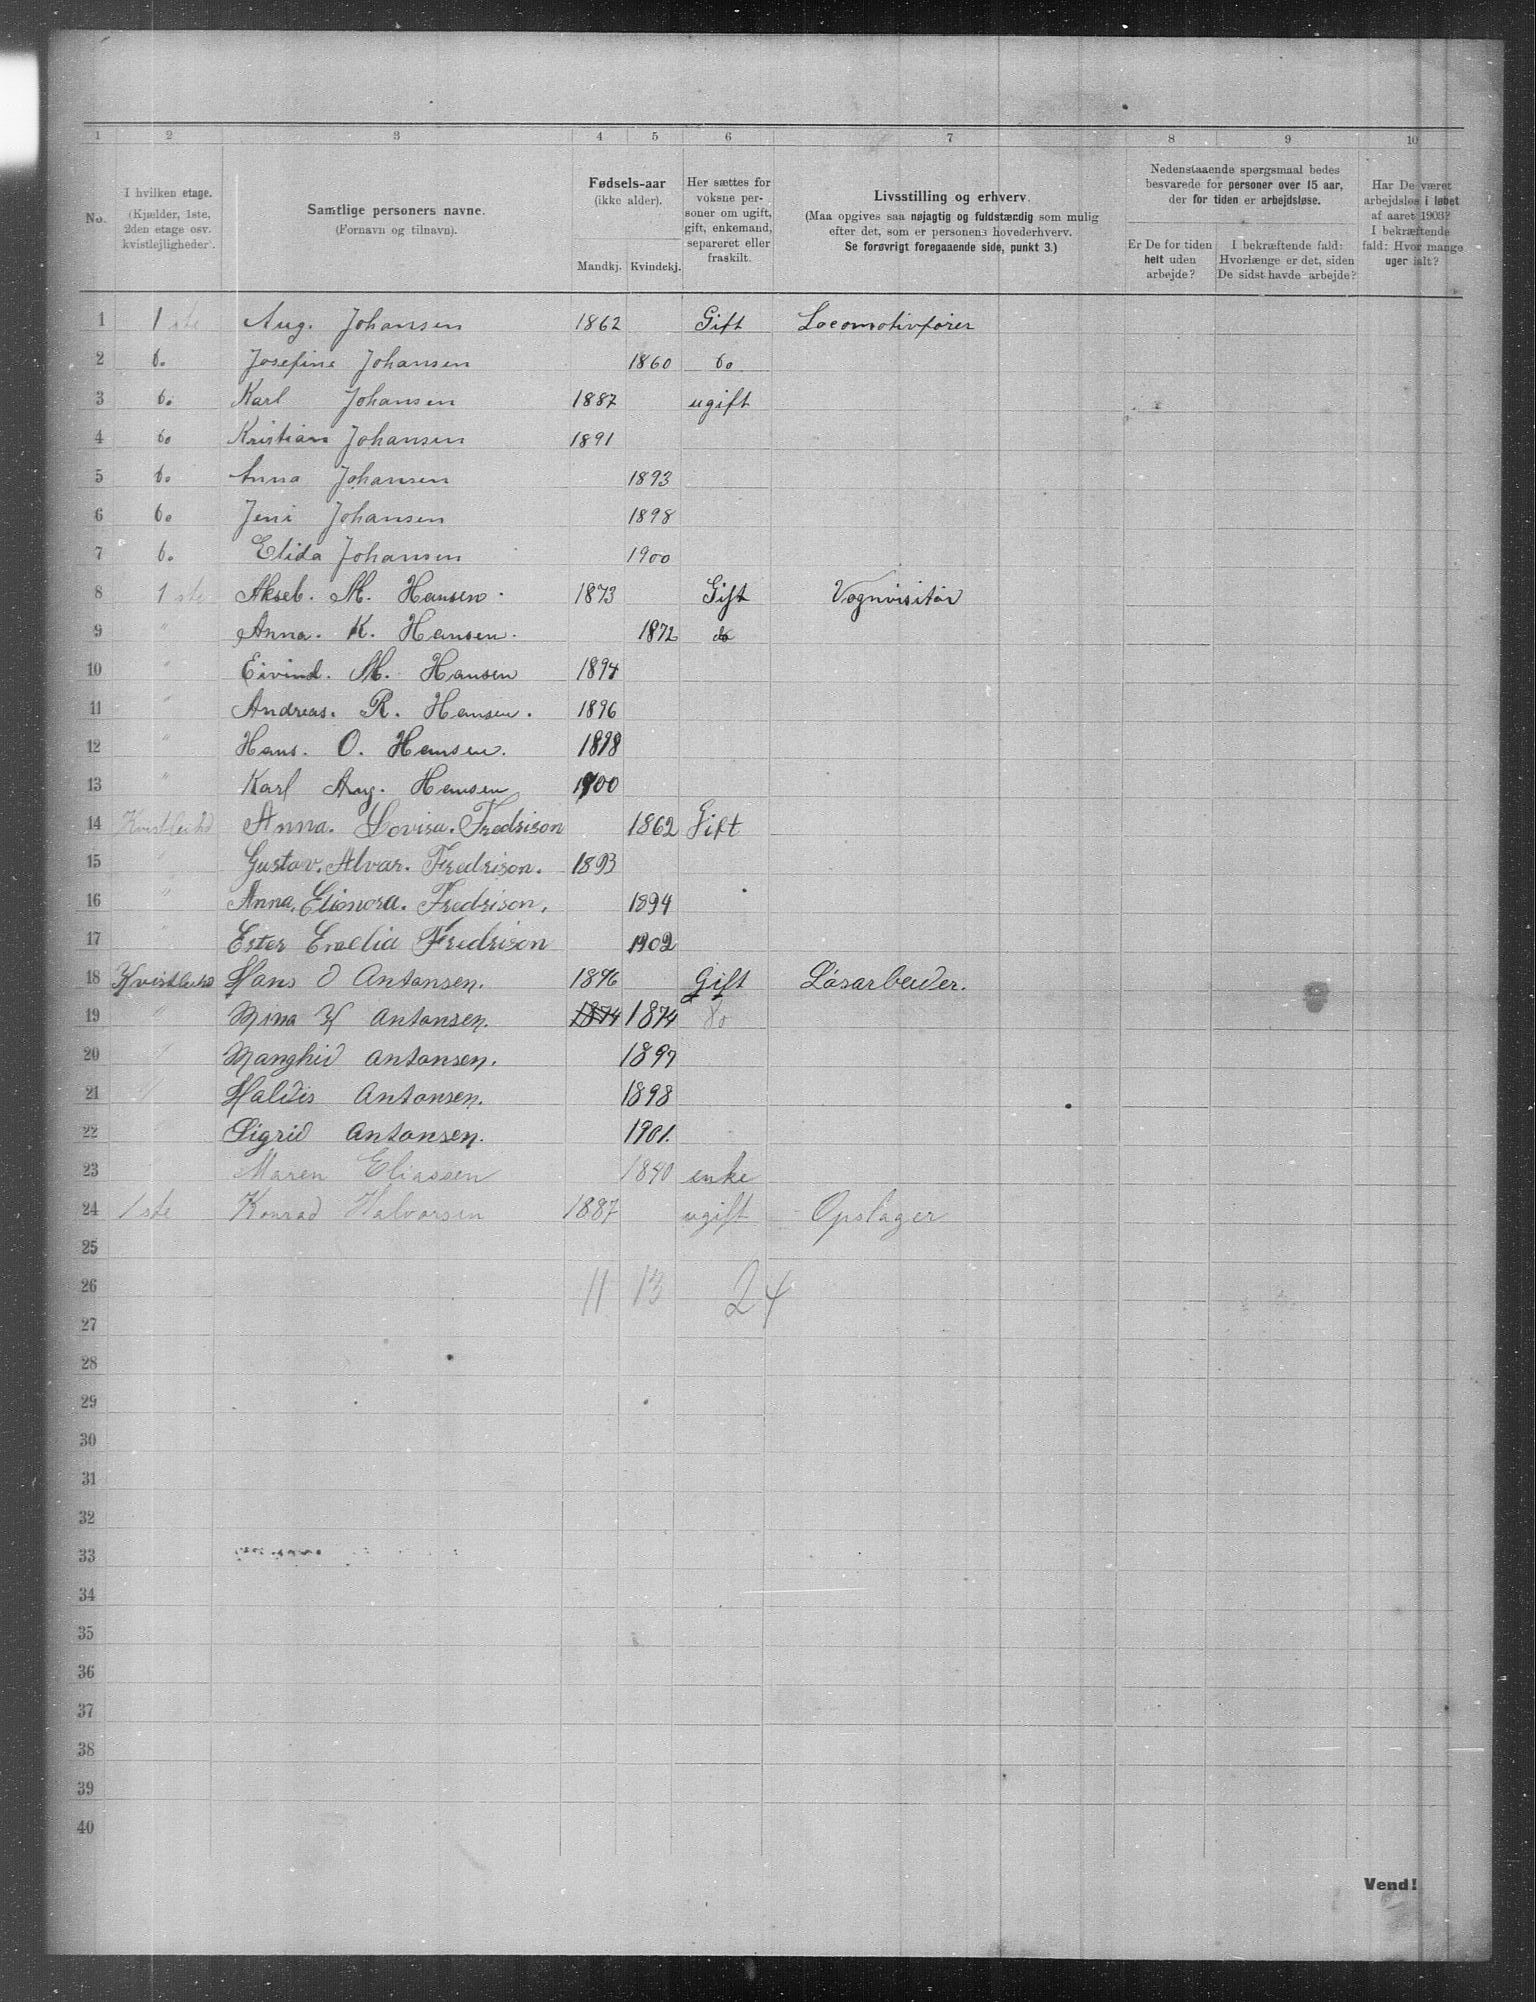 1 2 3 4 5 6 7 8 9 10
No.
I hvilken etage.
(Kjælder, 1ste,
2den etage osv.
kvistlejligheder).
Samtlige personers navne.
(Fornavn og tilnavn).
Fødsels-aar
(ikke alder).
Mandkj. Kvindekj.
Her sættes for
voksne per-
soner om ugift,
gift, enkemand,
separeret eller
fraskilt.
Livsstilling og erhverv.
(Maa opgives saa nøjagtig og fuldstændig som mulig
efter det, som er personens hovederhverv.
Se forøvrigt foregaaende side, punkt 3.)
Nedenstaaende spørgsmaal bedes
besvarede for personer over 15 aar,
der for tiden er arbejdsløse.
Er De for tiden
helt uden
arbejde?
I bekræftende fald:
Hvorlænge er det, siden
De sidst havde arbejde?
Har De været
arbejdsløs i løbet
af aaret 1903?
I bekræftende
fald: Hvor mange
uger ialt?
1 1 ste Aug. Johansen 1862 Gift Locomotivfører
2 do Josefine Johansen 1860 do
3 do Karl Johansen 1887 ugift
4 do Kristian Johansen 1891
5 do Anna Johansen 1893
6 do Jeni Johansen 1898
7 do Elida Johansen 1900
8 1 ste Aksel. M. Hansen. 1873 Gift Vognvisitør
9 " Anna. K. Hansen. 1872 do
10 " Eivind. M. Hansen 1894
11 " Andreas. R. Hansen. 1896
12 " Hans. O. Hansen. 1898
13 " Karl Aug. Hansen 1900
14 Anna. Lovisa. Fredrison 1862 Gift
15 " Gustav. Alvar. Fredrison. 1893
16 " Anna. Elionora. Fredrison. 1894
17 " Ester Emelia Fredrison 1902
18 Hans O Antonsen. 1876 Gift Løsarbeider.
19 " Nina H Antonsen. 1874 1874 do
20 " Manghid Antonsen. 1897
21 " Haldis Antonsen. 1898
22 Sigrid Antonsen. 1901.
23 Maren Eliassen 1840 enke
24 1 ste Konrad Halvorsen 1887 ugift Opslager
25
26 11 13 24
27
28
29
30
31
32
33
34
35
36
37
38
39
40
Vend!